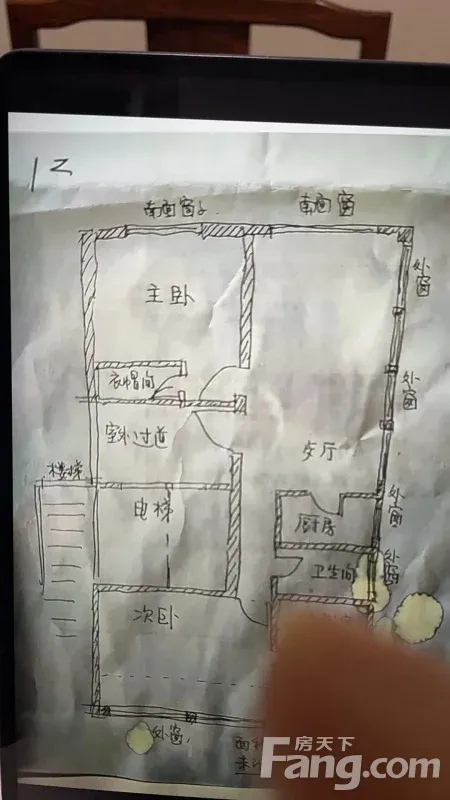 南面窗
南面窗
主卧
外窗
衣帽间
外窗
室外过道
客厅
楼梯
电梯
外窗
厨房
外窗
卫生间
次卧
外窗
房天下
Fang.com